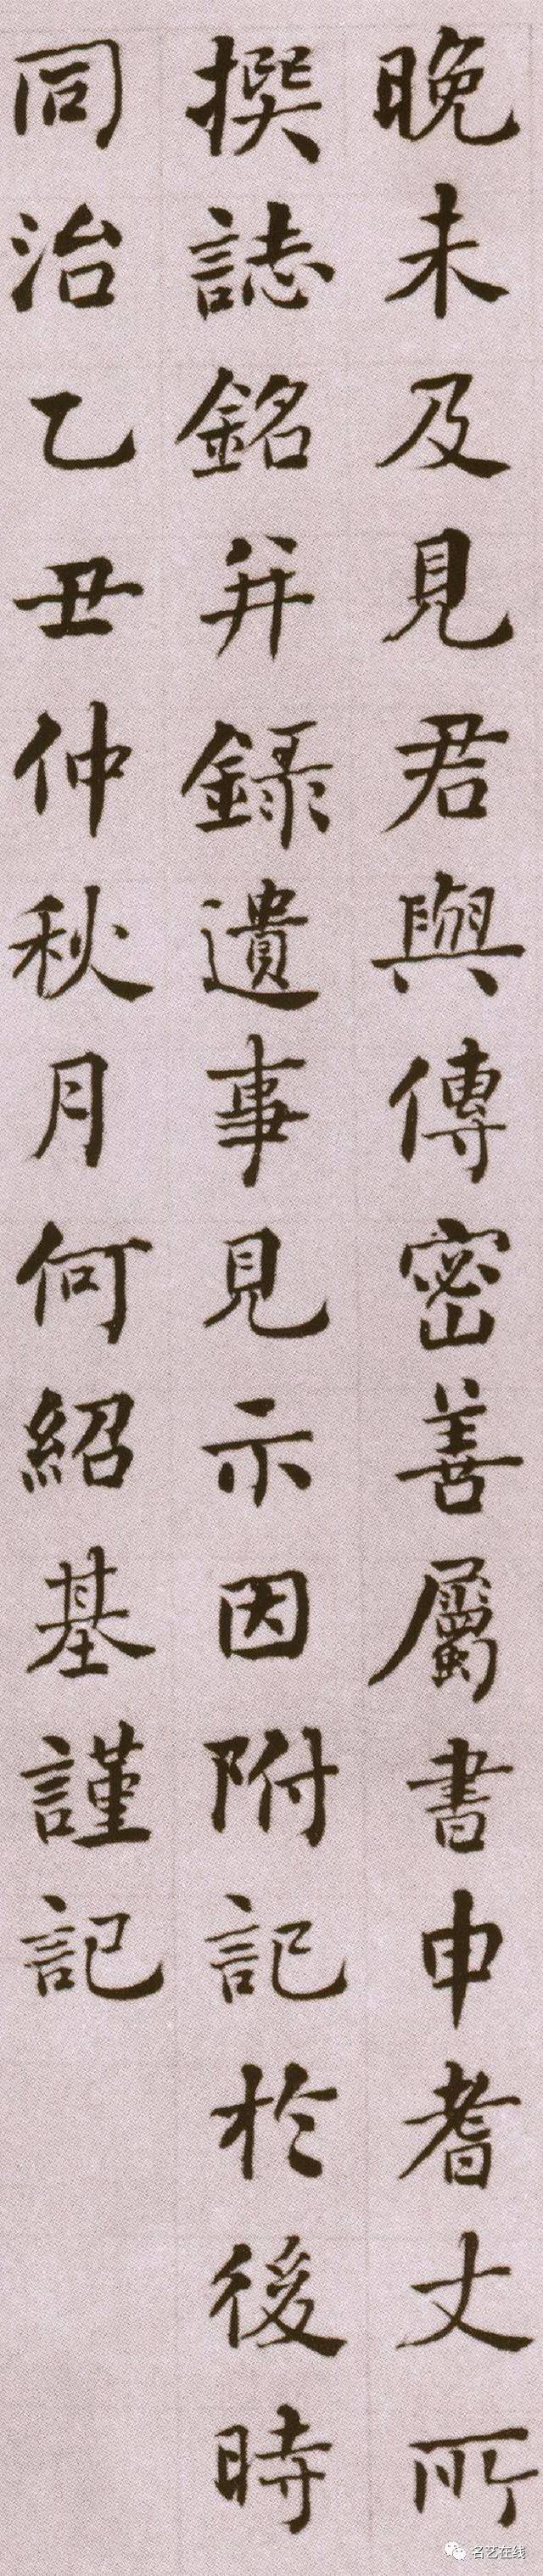 晚未及見君與傳密善屬書申耆丈所
撰誌銘并錄遺事見示因附記於後時
同治乙丑仲秋月何紹基謹記
名艺在线